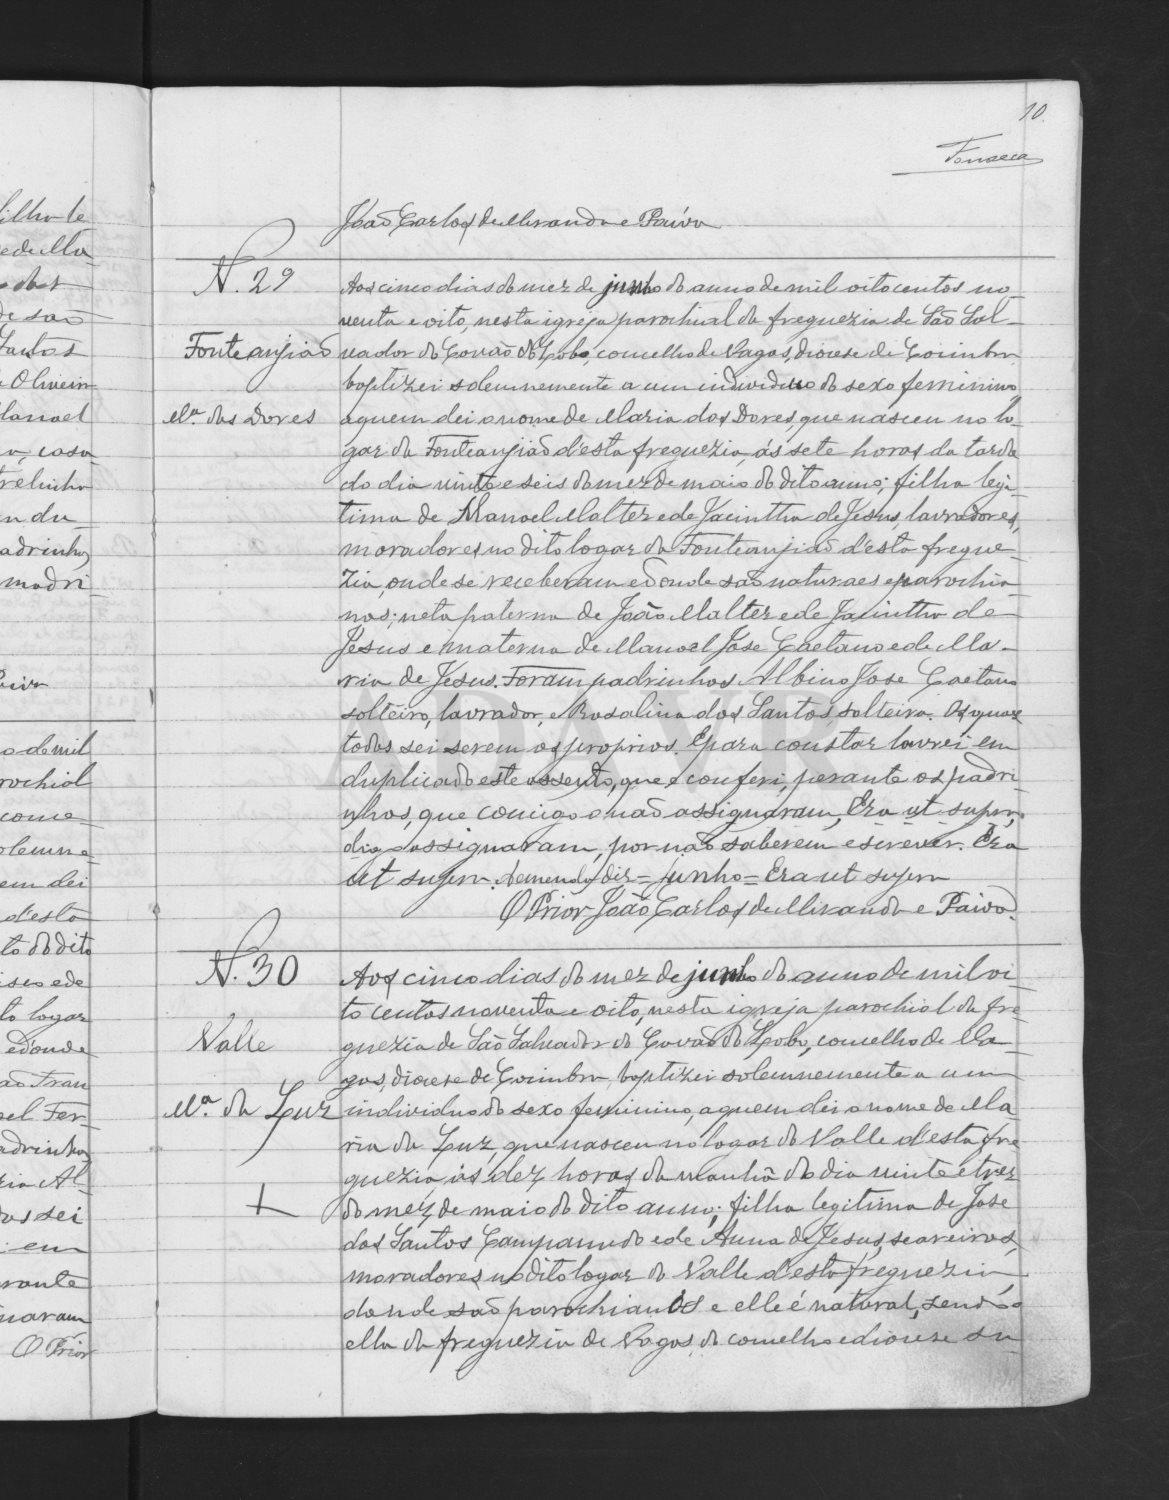 10.
Fonseca
João Carlos de Miranda e Paiva
N. 29
Fonteanjião
Mª. das Dores
Aos cinco dias do mez de junho do anno de mil oito centos no-
venta e oito, nesta igreja parochial da freguezia de São Sal-
vador do Covão do Lobo, concelho de Vagos, diocese de Coimbra
baptizei solemnemente a um individuo do sexo feminino
a quem dei o nome de Maria das Dores, que nasceu no lo-
gar da Fonteanjião d'esta freguezia, ás sete horas da tarde
do dia vinte e seis do mez de maio do dito anno; filha legi-
tima de Manoel Malter e de Jacintha de Jesus, lavradores,
moradores no dito logar da Fonteanjião d'esta fregue-
zia, onde se receberam e donde são naturaes e parochia-
nos; neta paterna de João Malter e de Jacintha de
Jesus e materna de Manoel José Caetano e de Ma-
ria de Jesus. Foram padrinhos Albino José Caetano
solteiro, lavrador, e Rosalina dos Santos, solteira. Os quaes
todos sei serem os proprios. E para constar lavrei em
duplicado este assento, que e conferi, perante os padri-
nhos, que comigo o não assignaram, Era ut supra,
digo assignaram, por não saberem escrever. Era
ut supra. Emenda, diz = junho = Era ut supra
O Prior João Carlos de Miranda e Paiva.
N. 30
Valle
Mª. da Luz
Aos cinco dias do mez de junho do anno de mil oi-
to centos noventa e oito, nesta igreja parochial da fre-
guezia de São Salvador do Covão do Lobo, concelho de Va-
gos, diocese de Coimbra, baptizei solemnemente a um
individuo do sexo feminino, a quem dei o nome de Ma-
ria da Luz, que nasceu no logar do Valle d'esta fre-
guezia, ás dez horas da manhã do dia vinte e trez
do mez de maio do dito anno; filha legitima de José
dos Santos Campanudo e de Anna de Jesus, seareiros,
moradores no dito logar do Valle d'esta freguezia,
donde são parochianos e elle é natural, sendo
ella da freguezia de Vagos, do concelho e diocese su-